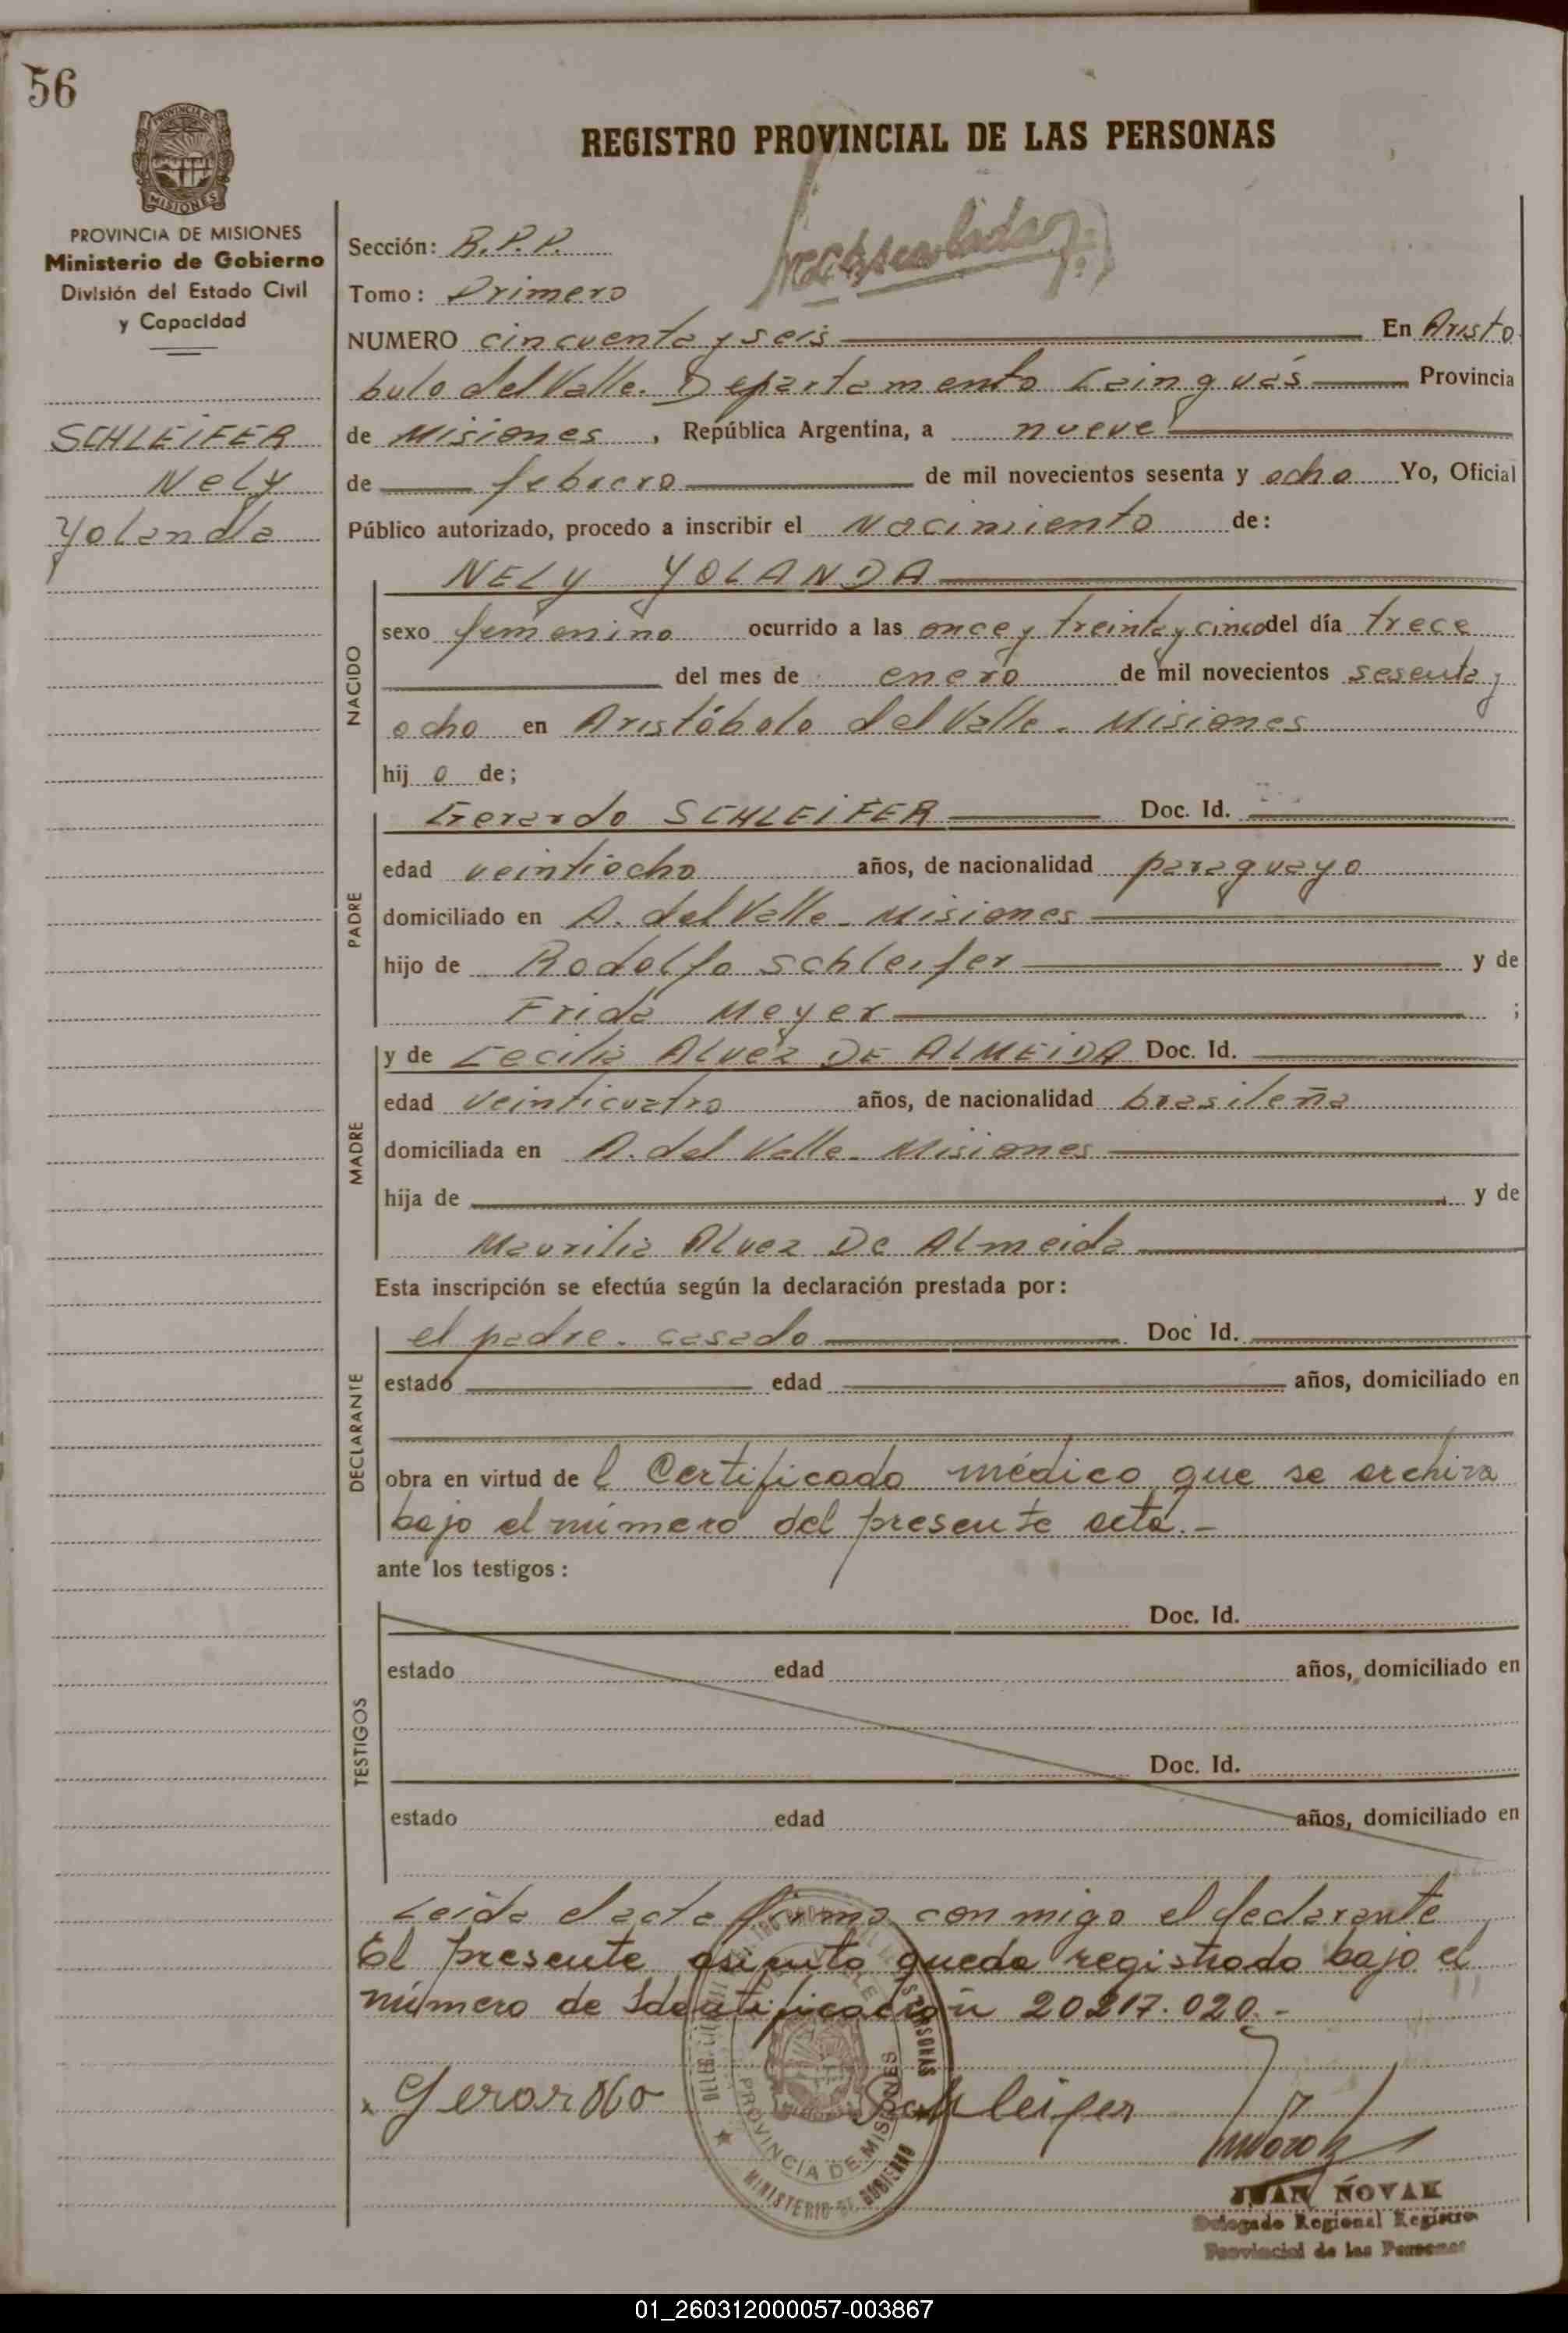 56
PROVINCIA DE
MISIONES
REGISTRO PROVINCIAL DE LAS PERSONAS
PROVINCIA DE MISIONES
Ministerio de Gobierno
División del Estado Civil
y Capacidad
SCHLEIFER
Nely
Yolanda
Sección: R.P.P.
Tomo: Primero
NUMERO cincuenta y seis En Aristo
bulo del Valle. Departamento Cainguás Provincia
de Misiones, República Argentina, a nueve
de febrero de mil novecientos sesenta y ocho Yo, Oficial
Público autorizado, procedo a inscribir el Nacimiento de:
NACIDO
NELY YOLANDA
sexo femenino ocurrido a las once y treinta y cinco del día trece
del mes de enero de mil novecientos sesenta y
ocho en Aristóbolo del Valle. Misiones
hij o de;
PADRE
Gerardo SCHLEIFER Doc. Id.
edad veintiocho años, de nacionalidad paraguayo
domiciliado en A. del Valle. Misiones
hijo de Rodolfo Schleifer y de
Frida Meyer ;
MADRE
y de Cecilia Alvez DE ALMEIDA Doc. Id.
edad veinticuatro años, de nacionalidad brasileña
domiciliada en A. del Valle. Misiones
hija de y de
Maurilia Alvez De Almeida
Esta inscripción se efectúa según la declaración prestada por:
DECLARANTE
el padre. casado Doc Id.
estado edad años, domiciliado en
obra en virtud de l Certificado médico que se archiva
bajo el número del presente acta.-
ante los testigos:
TESTIGOS
Doc. Id.
estado edad años, domiciliado en
Doc. Id.
estado edad años, domiciliado en
Leida el acta firma con migo el declarante
El presente asiento queda registrado bajo el
número de Identificación 20217.020.-
Gerardo Schleifer
PROVINCIA DE MISIONES
MINISTERIO DE GOBIERNO
JUAN NOVAK
Delegado Regional Registro
Provincial de las Personas
01_260312000057-003867